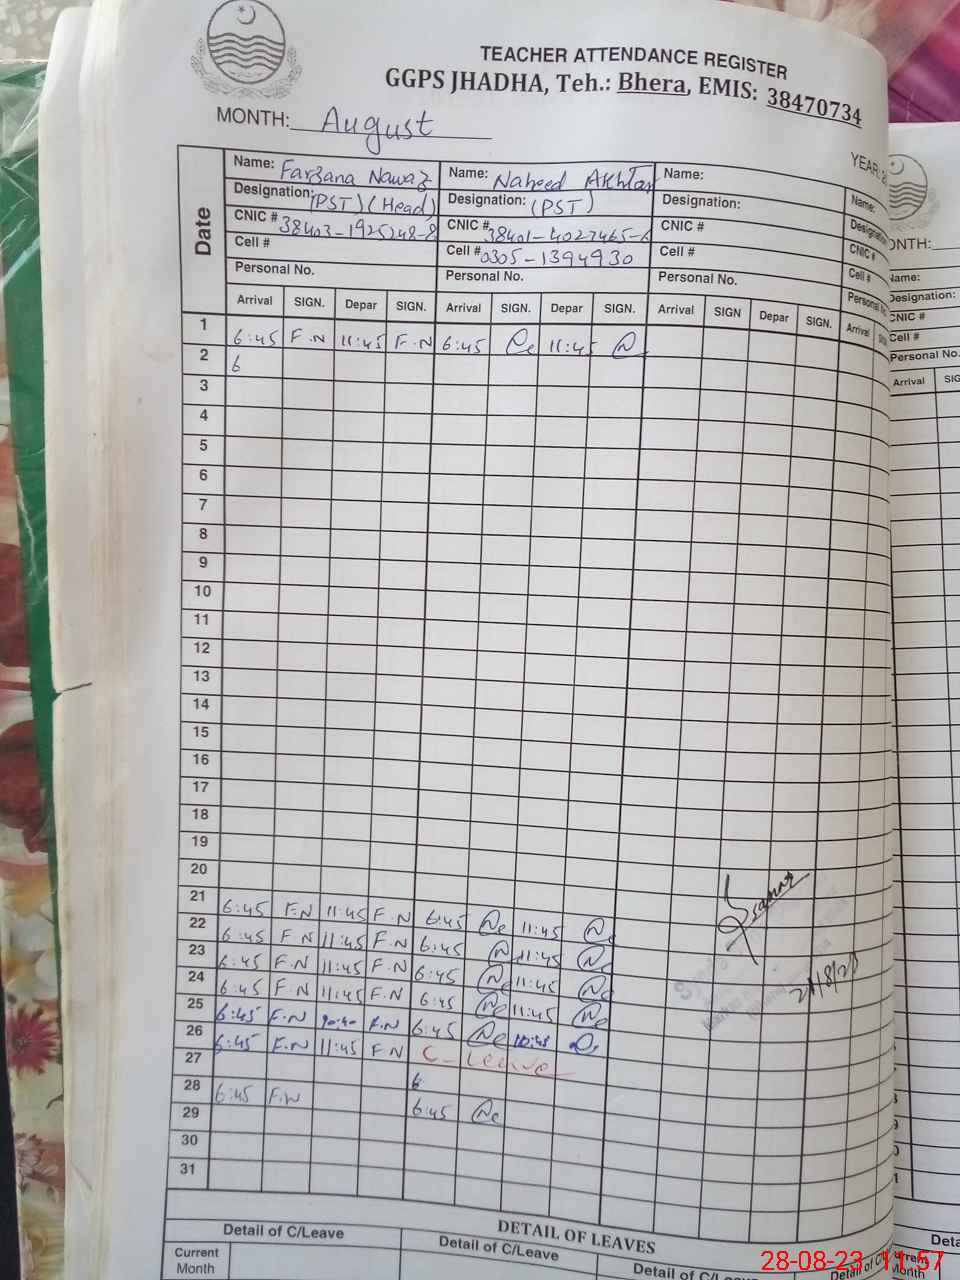 TEACHER ATTENDANCE REGISTER
GGPS JHADHA, Teh.: Bhera, EMIS: 38470734
MONTH: August
YEAR: 2
Date
Name: Farzana Nawaz Name: Naheed Akhtar Name: Name:
Designation: (PST) (Head) Designation: (PST) Designation:
CNIC # 38403-1925248-8 CNIC # 38401-4027465-6 CNIC # CNIC #
Cell # Cell # 0305-1394930 Cell # Cell #
Personal No. Personal No. Personal No.
Arrival SIGN. Depar SIGN. Arrival SIGN. Depar SIGN. Arrival SIGN Depar SIGN. Arrival
1 6:45 F.N 11:45 F.N 6:45 11:45
2 6
3
4
5
6
7
8
9
10
11
12
13
14
15
16
17
18
19
20
21 6:45 F.N 11:45 F.N 6:45 11:45
22 6:45 F.N 11:45 F.N 6:45 11:45
23 6:45 F.N 11:45 F.N 6:45 11:45
24 6:45 F.N 11:45 F.N 6:45 11:45
25 6:45 F.N F.N 6:45
26 6:45 F.N 11:45 F.N C-Leave
27 6
28 6:45 F.N 6:45
29
30
31
DETAIL OF LEAVES
Detail of C/Leave Detail of C/Leave Detail of C/Leave Detail of C/
Current
Month
ONTH:
Name:
Designation:
CNIC #
Cell #
Personal No.
Arrival SIG
Deta
Current
Month
28-08-23 11:57